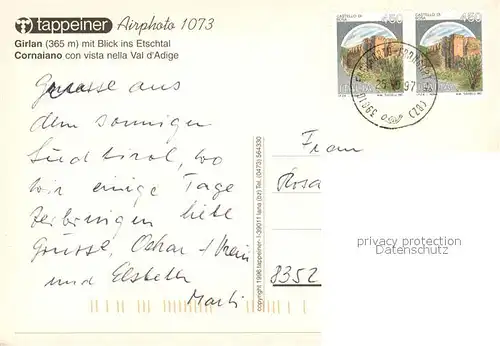 tappeiner Airphoto 1073
Girlan (365 m) mit Blick ins Etschtal
Cornaiano con vista nella Val d'Adige
CASTELLO DI BOSA 450
CASTELLO DI BOSA 450
ITALIA
Grüsse aus
dem sonnigen
Südtirol, wo
wir einige Tage
verbringen liebe
Grüsse, Oskar
und Elsbeth
Marti
copyright 1996 tappeiner-I-39011 lana (bz) Tel. (0473) 564330
Frau
Rosa
8352
privacy protection
Datenschutz